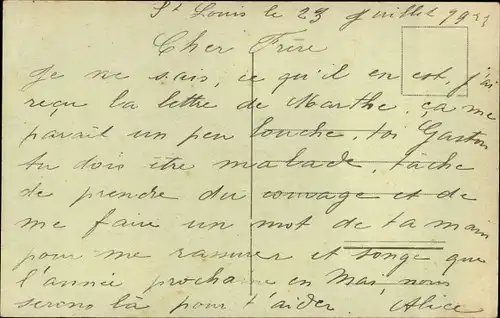 St Louis le 23 Juillet 1923
Cher Frère
Je ne sais, ce qu'il en est, j'ai
reçu la lettre de Marthe. ça me
parait un peu louche, toi Gaston
tu dois être malade, tâche
de prendre du courage et de
me faire un mot de ta main
pour me rassurer et songe que
l'année prochaine en Mai, nous
serons là pour t'aider. Alice